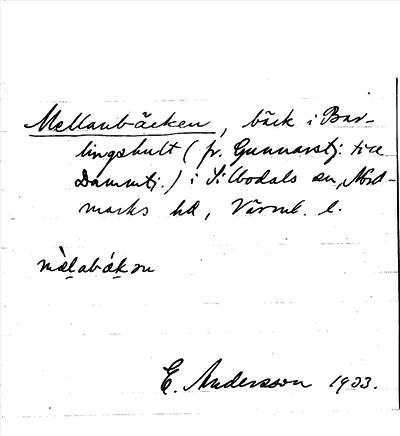 Mellanbäcken, bäck i Bar-
lingshult (fr. Gunnarstj. till
Dammtj.) i Silbodals sn, Nord-
marks hd, Värml. l.
mèlabákən
E. Andersson 1933.